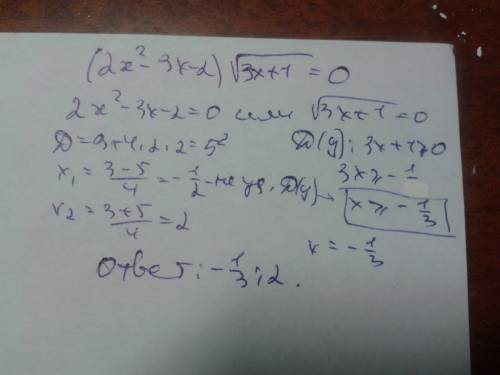 (2x²-3x-2)√3x+1 = 0
2x²-3x-2=0 или √3x+1=0
D=9+4·2·2=5² D(y): 3x+1≥0
x₁ = (3-5)/4 = -1/2 - не уд. D(y) 3x≥-1
x₂ = (3+5)/4 = 2 x≥-1/3
x = -1/3
Ответ: -1/3; 2.